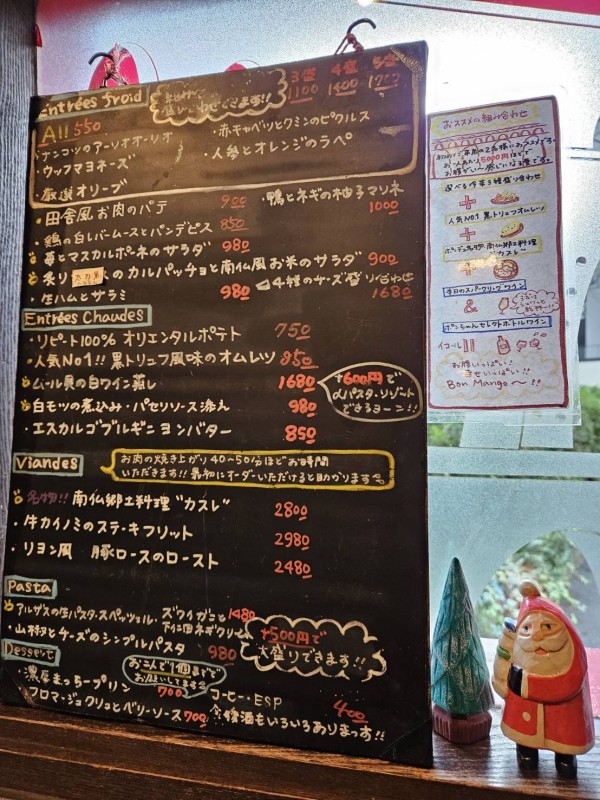 Entrées froid
3種 4種 5種
1100 1400 1700
All 550
・ナンコツのアーリオオーリオ
・ウッフマヨネーズ
・厳選オリーブ
・赤キャベツとクミンのピクルス
人参とオレンジのラペ
・田舎風お肉のパテ 900
・鴨とネギの柚子マリネ 1000
・鶏の白レバームースとパンデピス 850
・苺とマスカルポーネのサラダ 980
・炙り のカルパッチョと南仏風お米のサラダ 900
・生ハムとサラミ 980
4種のチーズ盛り合わせ 1680
Entrées Chaudes
・リピート100% オリエンタルポテト 750
・人気No1!! 黒トリュフ風味のオムレツ 850
・ムール貝の白ワイン蒸し 1680
+600円で
パスタ・リゾット
できるヨーン!!
・白モツの煮込み・パセリソース添え 980
・エスカルゴブルギニヨンバター 850
Viandes
お肉の焼き上がり40〜50分ほどお時間
いただきます!! 最初にオーダーいただけると助かります
・名物!! 南仏郷土料理"カスレ" 2800
・牛カイノミのステーキフリット 2980
・リヨン風 豚ロースのロースト 2480
Pasta
・アルザスの生パスタ・スペッツェル・ズワイガニと
下仁田ネギクリーム 1480
・山椒とチーズのシンプルパスタ 980
+500円で
大盛りできます!!
Dessert
おこんで1個までで
お願いしてます
・濃厚まっちープリン 700
フロマージュクリュとベリーソース 700
コーヒー・ESP 400
食後酒もいろいろあります!!
おススメの組み合わせ
お一人あたり5000円ほどで
選べる前菜3種盛り合わせ
+
人気No1 黒トリュフオムレツ
+
ボンデュ名物 南仏郷土料理
"カスレ"
+
本日のスパークリングワイン
&
ボンちゃんセレクトボトルワイン
イコール
お腹いっぱい!
幸せいっぱい!!
Bon Mange〜!!